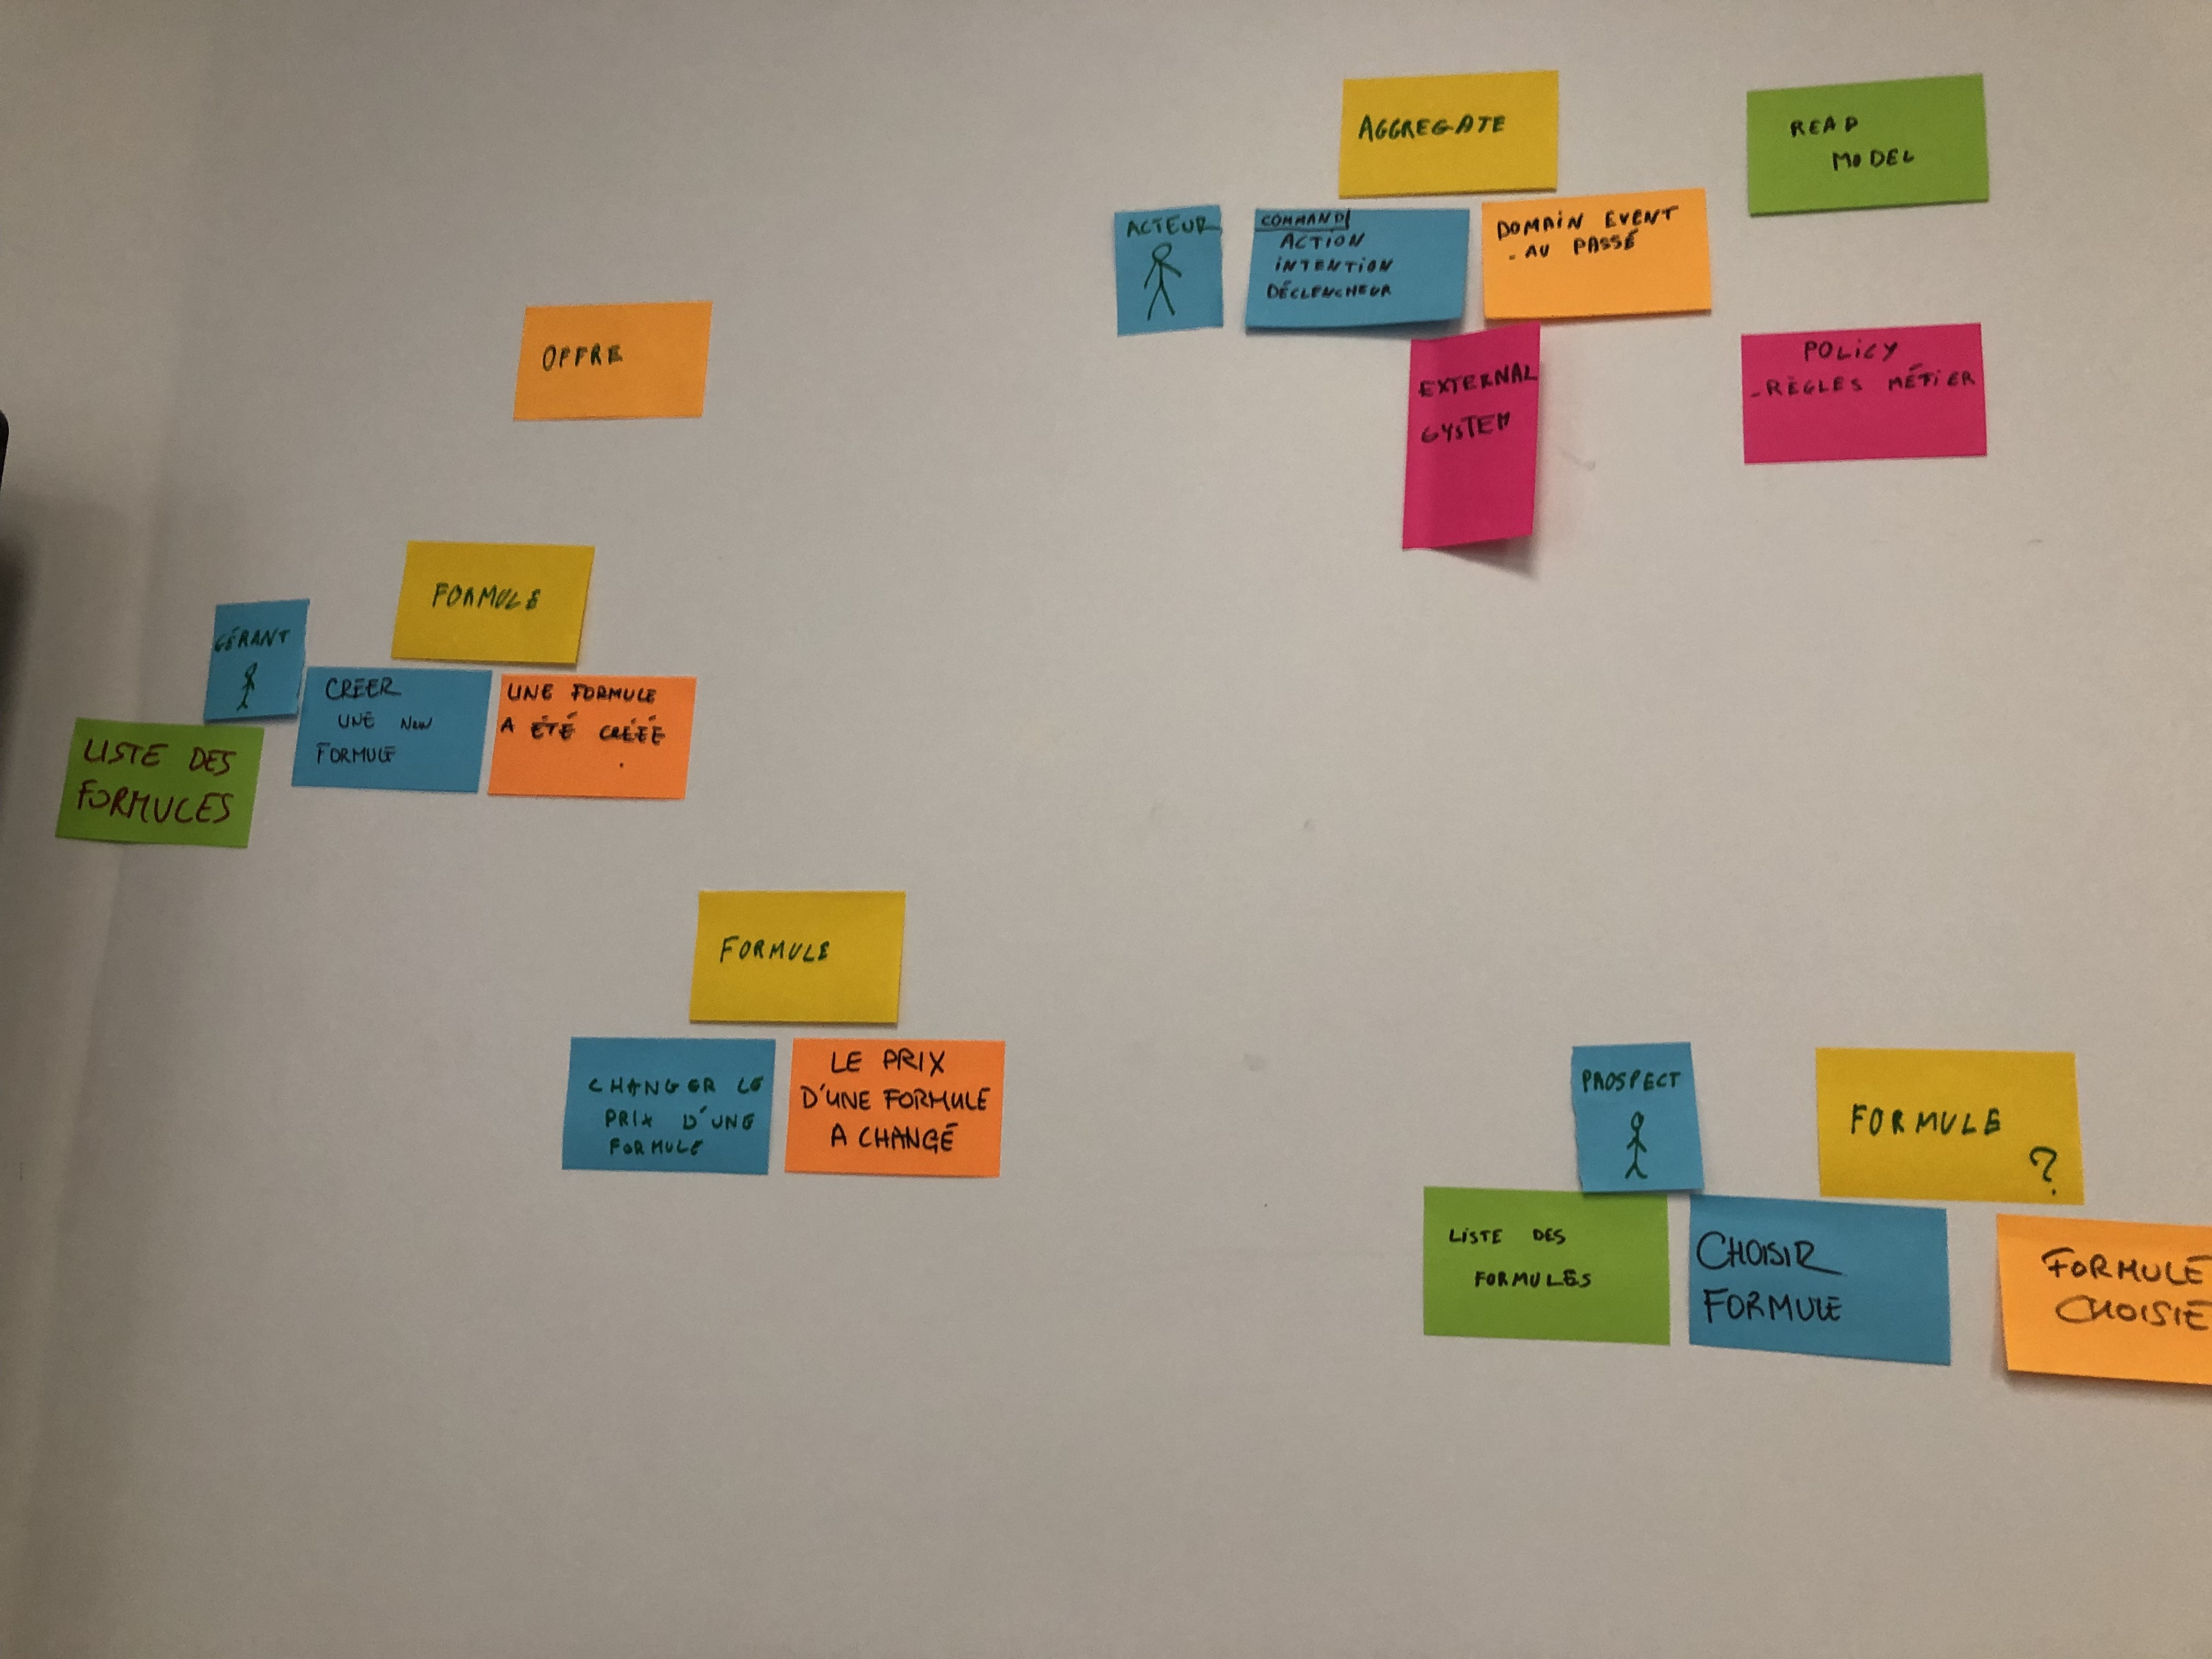 AGGREGATE
READ
MODEL
ACTEUR
COMMAND
ACTION
INTENTION
DÉCLENCHEUR
DOMAIN EVENT
- AU PASSÉ
EXTERNAL
SYSTEM
POLICY
- RÈGLES MÉTIER
OFFRE
FORMULE
GÉRANT
CRÉER
UNE NEW
FORMULE
UNE FORMULE
A ÉTÉ CRÉÉE
LISTE DES
FORMULES
FORMULE
CHANGER LE
PRIX D'UNE
FORMULE
LE PRIX
D'UNE FORMULE
A CHANGÉ
PROSPECT
FORMULE
?
LISTE DES
FORMULES
CHOISIR
FORMULE
FORMULE
CHOISIE